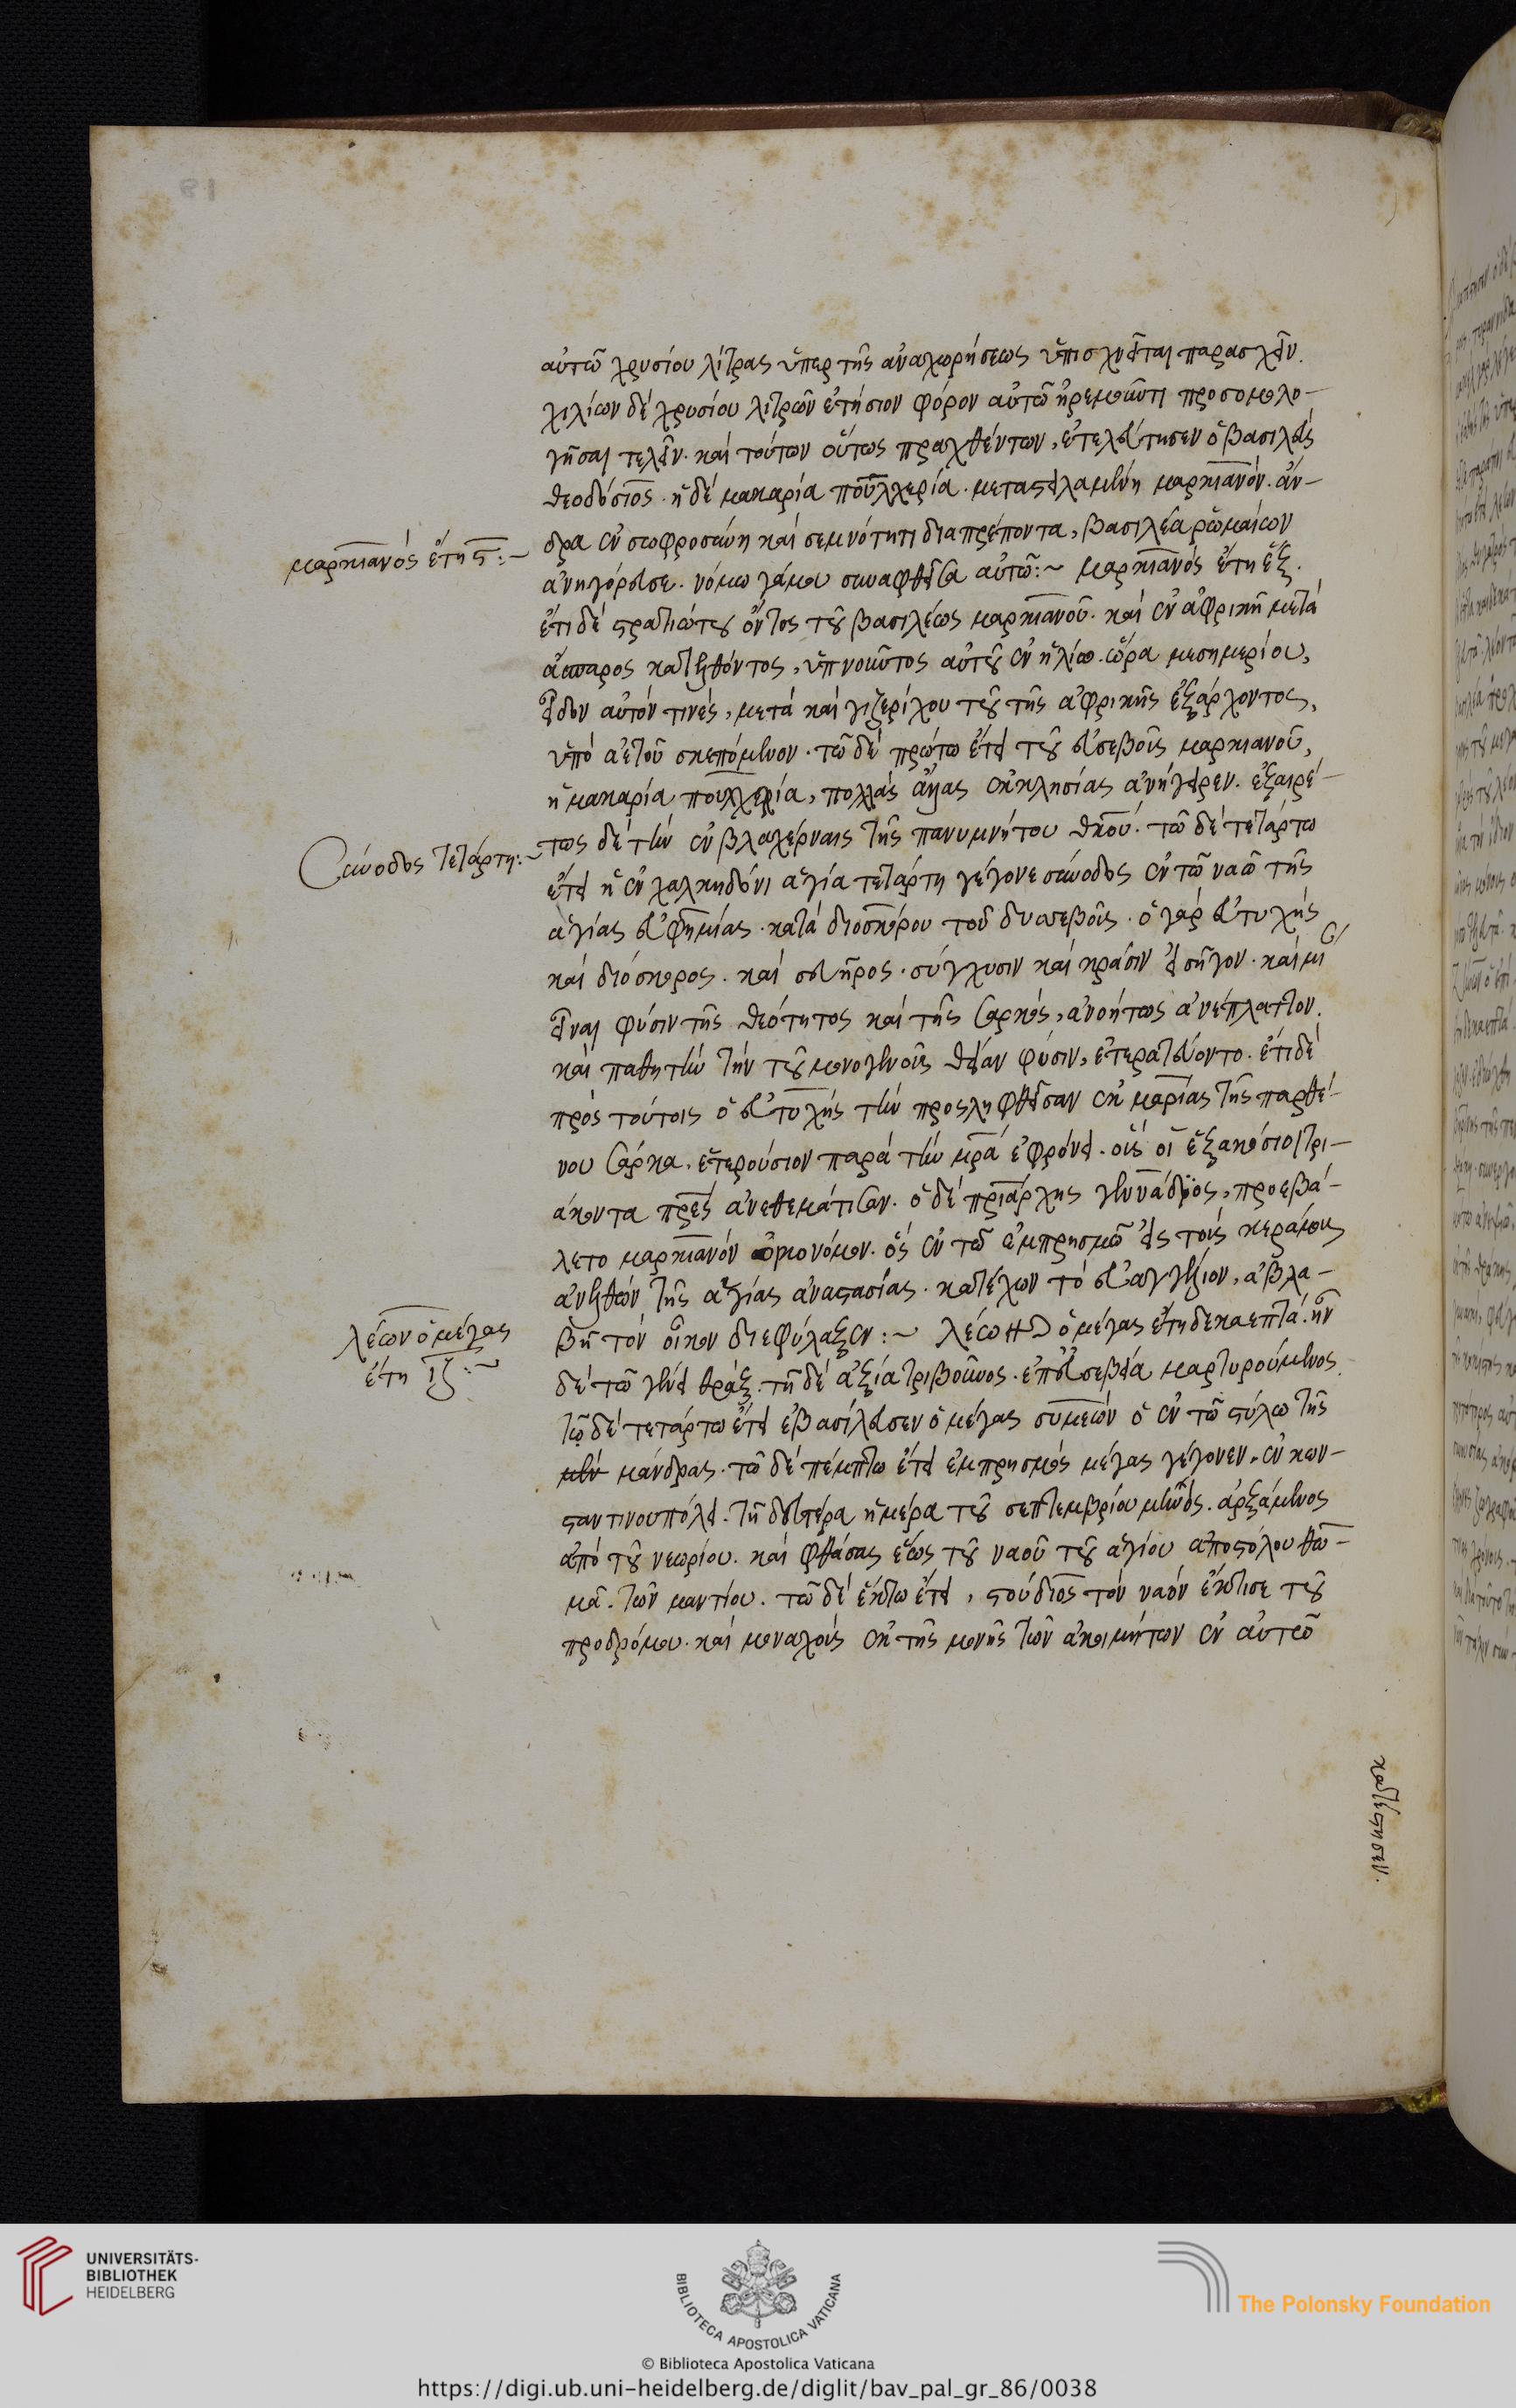 αὐτῶ χρυσίου λίτρας ὑπερ τῆς ἀναχωρήσεως ὑπισχνεῖται παρασχεῖν.
χιλίων δέ χρυσίου λιτρῶν ἐτήσιον φόρον αὐτῶ ἠρεμοῦντι προσομολο-
γῆσαι τελεῖν. καί τούτων οὕτως πραχθέντων, ἐτελεύτησεν ὁ βασιλεύς
θεοδόσιος. ἡ δέ μακαρία πουλχερία. μεταστειλαμένη μαρκιανόν. ἄν-
δρα ἐν σωφροσύνη καί σεμνότητι διαπρέποντα, βασιλέα ῥωμαίων
μαρκιανός ἔτη ς:~
ἀνηγόρευσε. νόμω γάμου συναφθεῖσα αὐτῶ:~ μαρκιανός ἔτη ἕξ.
ἔτι δέ στρατιώτου ὄντος τοῦ βασιλέως μαρκιανοῦ. καί ἐν ἀφρικῆ μετά
ἄσπαρος κατελθόντος, ὑπνοῦντος αὐτοῦ ἐν ἡλίω. ὥρα μεσημερίου,
εἶδον αὐτόν τινές, μετά καί γιζερίχου τοῦ τῆς ἀφρικῆς ἐξάρχοντος,
ὑπό ἀετοῦ σκεπόμενον. τῶ δέ πρώτω ἔτει τοῦ εὐσεβοῦς μαρκιανοῦ,
ἡ μακαρία πουλχερία, πολλάς ἁγίας ἐκκλησίας ἀνήγειρεν. ἐξαιρέ-
τως δέ τήν ἐν βλαχέρναις τῆς πανυμνήτου θκου. τῶ δέ τετάρτω
Σύνοδος τετάρτη:~
ἔτει ἡ ἐν χαλκηδόνι ἁγία τετάρτη γέγονε σύνοδος ἐν τῶ ναῶ τῆς
ἁγίας εὐφημίας. κατά διοσκόρου τοῦ δυσσεβοῦς. ὁ γάρ εὐτυχής
καί διόσκορος. καί σευῆρος. σύγχυσιν καί κρᾶσιν εἰσῆγον. καί μι
εἶναι φύσιν τῆς θεότητος καί τῆς σαρκός, ἀνοήτως ἀνέπλαττον.
καί παθητήν τήν τοῦ μονογενοῦς θείαν φύσιν, ἐτερατεύοντο. ἔτι δέ
πρός τούτοις ὁ εὐτυχής τήν προσληφθεῖσαν ἐκ μαρίας τῆς παρθέ-
νου σάρκα, ἑτερούσιον παρά τήν μρα ἐφρόνει. οὕς οἱ ἑξακόσιοι τρι-
άκοντα πρες ἀνεθεμάτισαν. ὁ δέ πριάρχης γεννάδϊος, προεβά-
λετο μαρκιανόν οἰκονόμον. ὅς ἐν τῶ ἐμπρησμῶ εἰς τούς κεράμους
ἀνελθών τῆς ἁγίας ἀναστασίας. κατέχων τό εὐαγγέλιον, ἀβλα-
λέων ὁ μέγας
ἔτη ιζ:~
βῆ τόν οἶκον διεφύλαξεν:~ λέων ὁ μέγας ἔτη δεκαεπτά. ἦν
δέ τῶ γένει θράξ. τῆ δέ ἀξία τριβοῦνος. ἐπ' εὐσεβεία μαρτυρούμενος.
τῶ δέ τετάρτω ἔτει ἐβασίλευσεν ὁ μέγας συμεών ὁ ἐν τῶ στύλω τῆς
μέν μάνδρας. τῶ δέ πέμπτω ἔτει ἐμπρησμός μέγας γέγονεν, ἐν κων-
σταντινουπόλει. τῆ δευτέρα ἡμέρα τοῦ σεπτεμβρίου μηνός. ἀρξάμενος
ἀπό τοῦ νεωρίου. καί φθάσας ἕως τοῦ ναοῦ τοῦ ἁγίου ἀποστόλου θω-
μᾶ. τῶν μαντίου. τῶ δέ ἕκτω ἔτει, στούδιος τόν ναόν ἔκτισε τοῦ
προδρόμου. καί μοναχούς ἐκ τῆς μονῆς τῶν ἀκοιμήτων ἐν αὐτῶ
κατέστησεν.
UNIVERSITÄTS-
BIBLIOTHEK
HEIDELBERG
BIBLIOTECA APOSTOLICA VATICANA
The Polonsky Foundation
© Biblioteca Apostolica Vaticana
https://digi.ub.uni-heidelberg.de/diglit/bav_pal_gr_86/0038